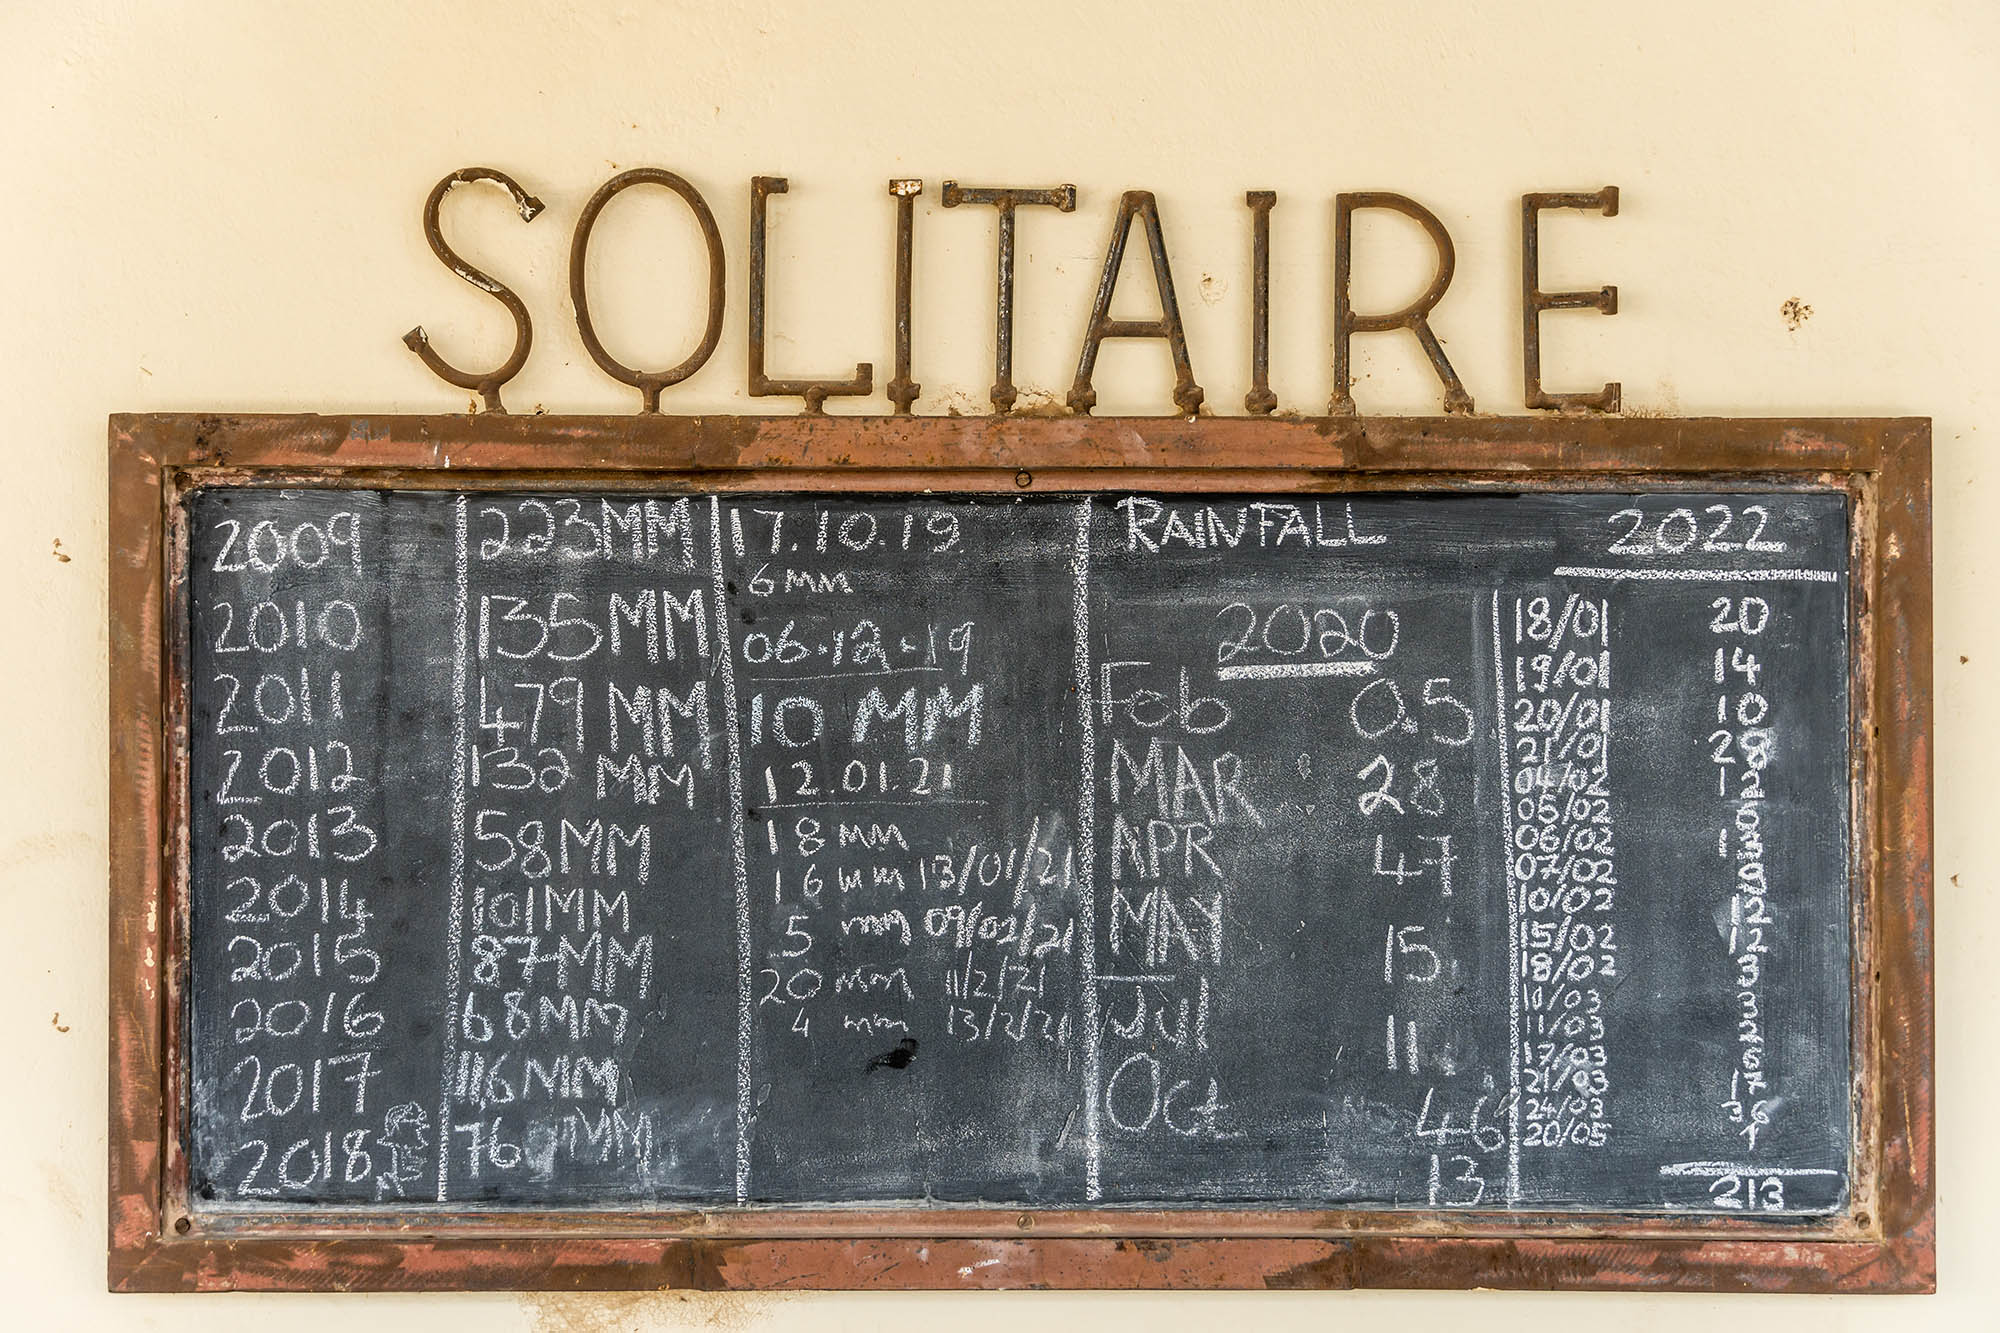 SOLITAIRE
2009 223MM
2010 135MM
2011 479MM
2012 132MM
2013 58MM
2014 101MM
2015 87MM
2016 68MM
2017 116MM
2018 76 MM
17.10.19
6mm
06.12.19
10 MM
12.01.21
18mm
16mm 13/01/21
5 mm 09/02/21
20 mm 11/2/21
4 mm 13/2/21
RAINFALL 2022
2020
Feb 0.5
MAR 28
APR 47
MAY 15
Jul 11
Oct 46
13
18/01 20
19/01 14
20/01 10
21/01 28
04/02 12
05/02
06/02
07/02
10/02
15/02
18/02
10/03
11/03
17/03
21/03
24/03 36
20/05 1
213